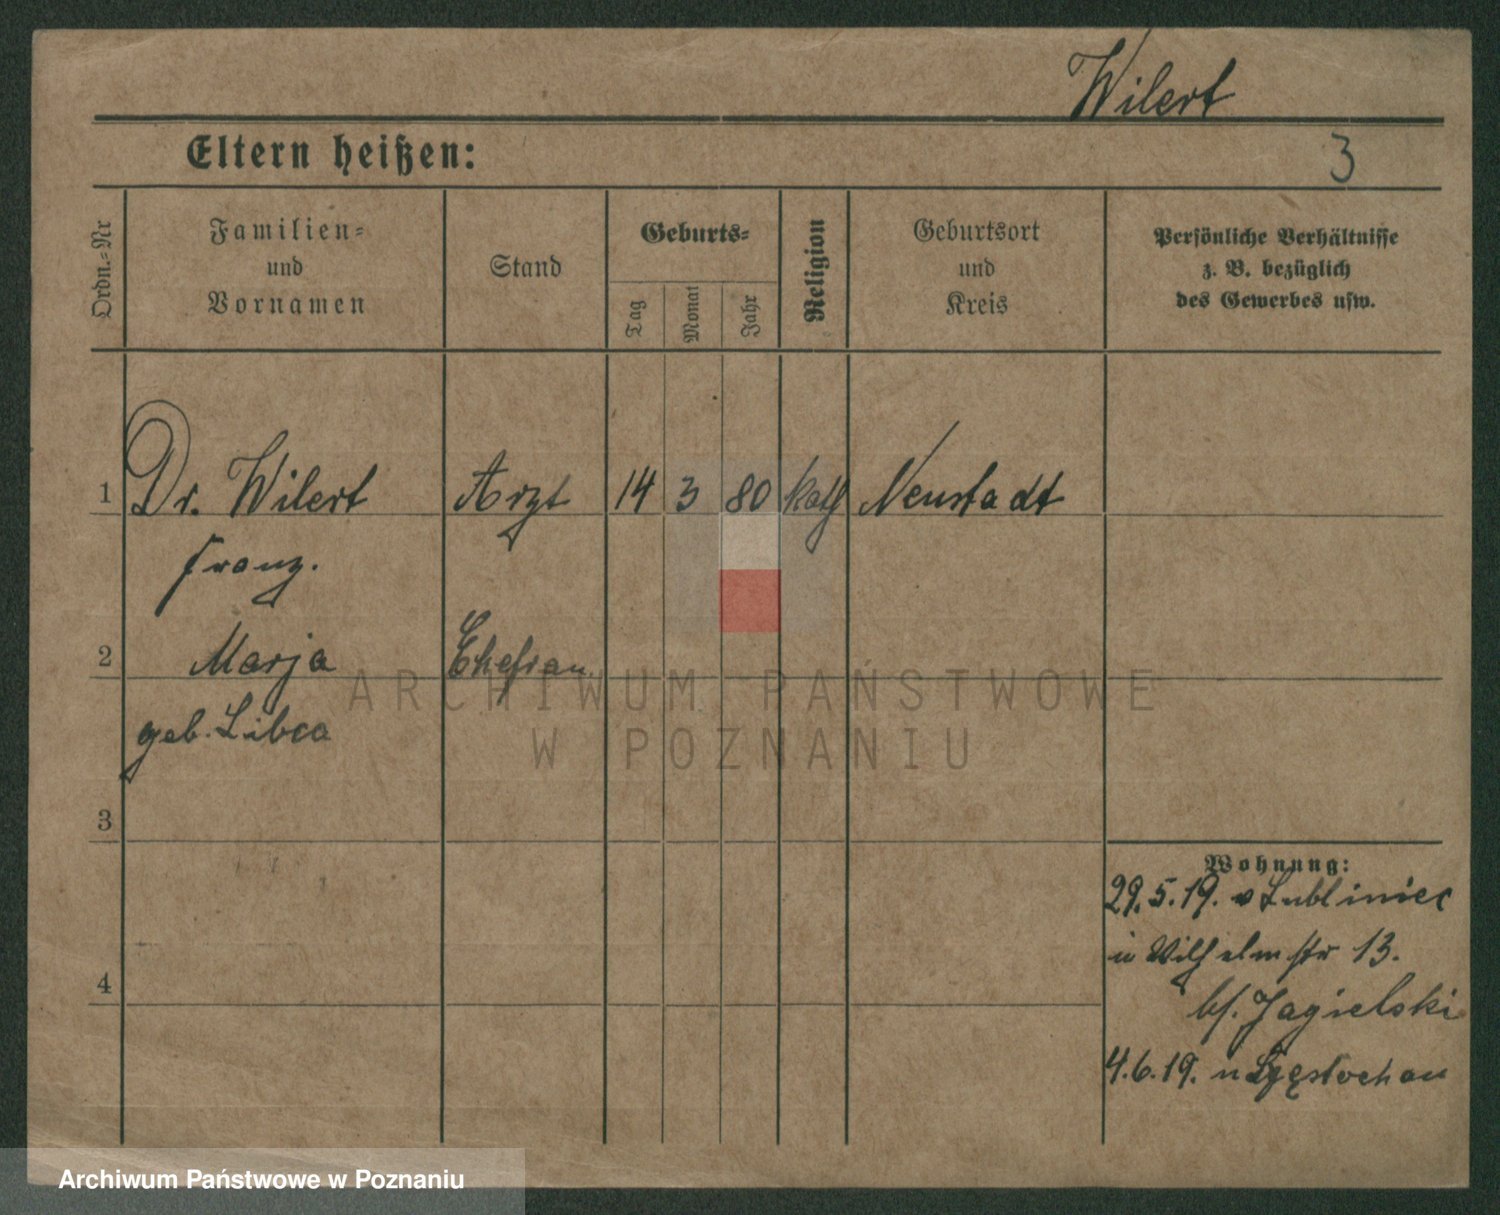 Wilert
Eltern heißen:
3
Ordn.-Nr
Familien-
und
Vornamen
Stand
Geburts-
Tag
Monat
Jahr
Religion
Geburtsort
und
Kreis
Persönliche Verhältnisse
z. B. bezüglich
des Gewerbes usw.
1 Dr. Wilert Arzt 14 3 80 kath Neustadt
Franz.
2 Marja Ehefrau.
geb. Libea
ARCHIWUM PAŃSTWOWE
W POZNANIU
3
Wohnung:
29.5.19. v Lubliniec
Wilhelmstr 13.
4
b/. Jagielski
4.6.19. n Częstochau
Archiwum Państwowe w Poznaniu